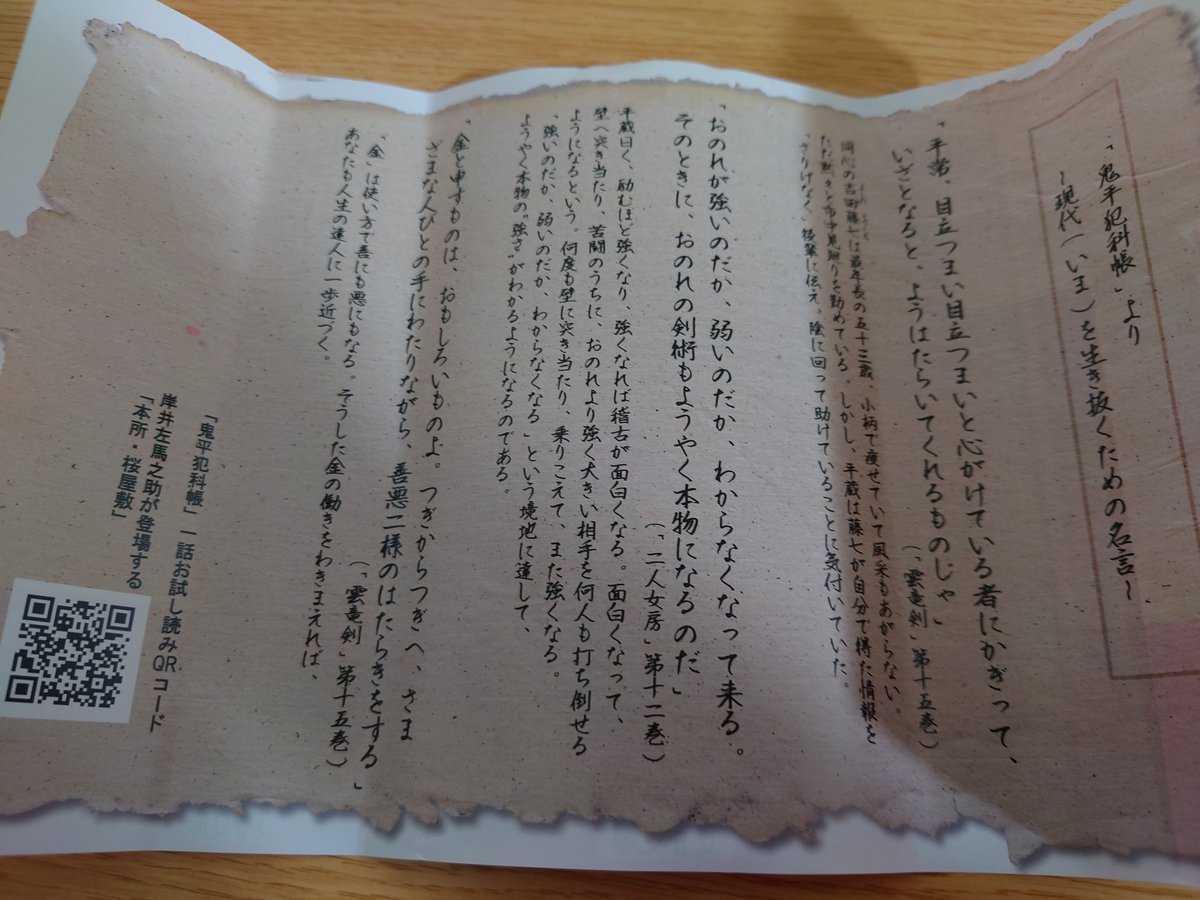 「鬼平犯科帳」より
～現代（いま）を生き抜くための名言～
「平常、目立つまい目立つまいと心がけている者にかぎって、
いざとなると、ようはたらいてくれるものじゃ」
（「雲竜剣」第十五巻）
同心の吉田藤七は最年長の五十三歳。小柄で痩せていて風采もあがらない。
ただ黙々と市中見廻りを勤めている。しかし、平蔵は藤七が自分で得た情報を
さりげなく、後輩に伝え、陰に回って助けていることに気付いていた。
「おのれが強いのだか、弱いのだか、わからなくなって来る。
そのときに、おのれの剣術もようやく本物になるのだ」
（「二人女房」第十二巻）
平蔵曰く、励むほど強くなり、強くなれば稽古が面白くなる。面白くなって、
壁へ突き当たり、苦闘のうちに、おのれより強く大きい相手を何人も打ち倒せる
ようになるという。何度も壁に突き当たり、乗りこえて、また強くなる。
「強いのだか、弱いのだか、わからなくなる」という境地に達して、
ようやく本物の“強さ”がわかるようになるのである。
「金と申すものは、おもしろいものよ。つぎからつぎへ、さま
ざまな人びとの手にわたりながら、善悪二様のはたらきをする」
（「雲竜剣」第十五巻）
「金」は使い方で善にも悪にもなる。そうした金の働きをわきまえれば、
あなたも人生の達人に一歩近づく。
「鬼平犯科帳」一話お試し読みQRコード
岸井左馬之助が登場する
「本所・桜屋敷」